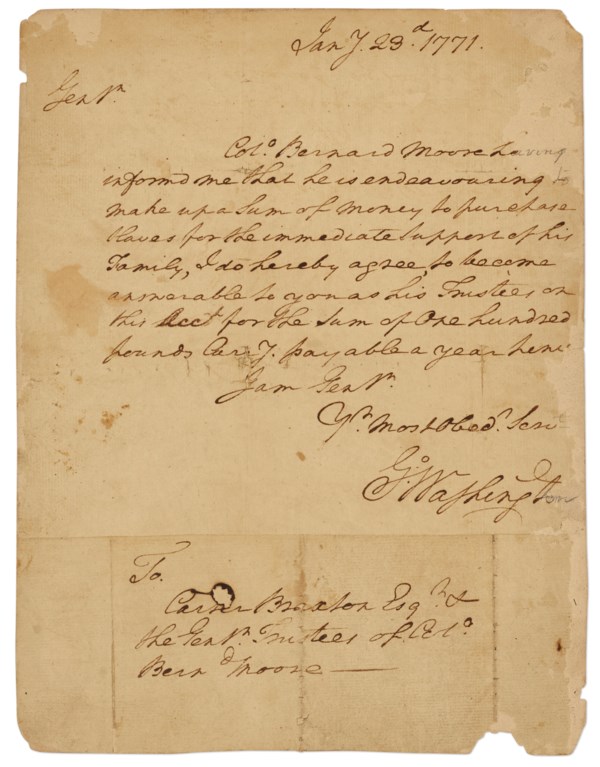 Jan.y. 23.d 1771.
Gent.n
Colo. Bernard Moore having
informd me that he is endeavouring to
make up a Sum of money to purchase
slaves for the immediate support of his
Family, I do hereby agree, to become
answerable to you as his Trustees on
this Acct for the Sum of One hundred
pounds Curr.y. payable a year hence
I am Gent.n
Yr. most Obed.t Serv
Go. Washington
To.
Carter Braxton Esq.r &
the Gent.n Trustees of Colo.
Bern.d Moore —